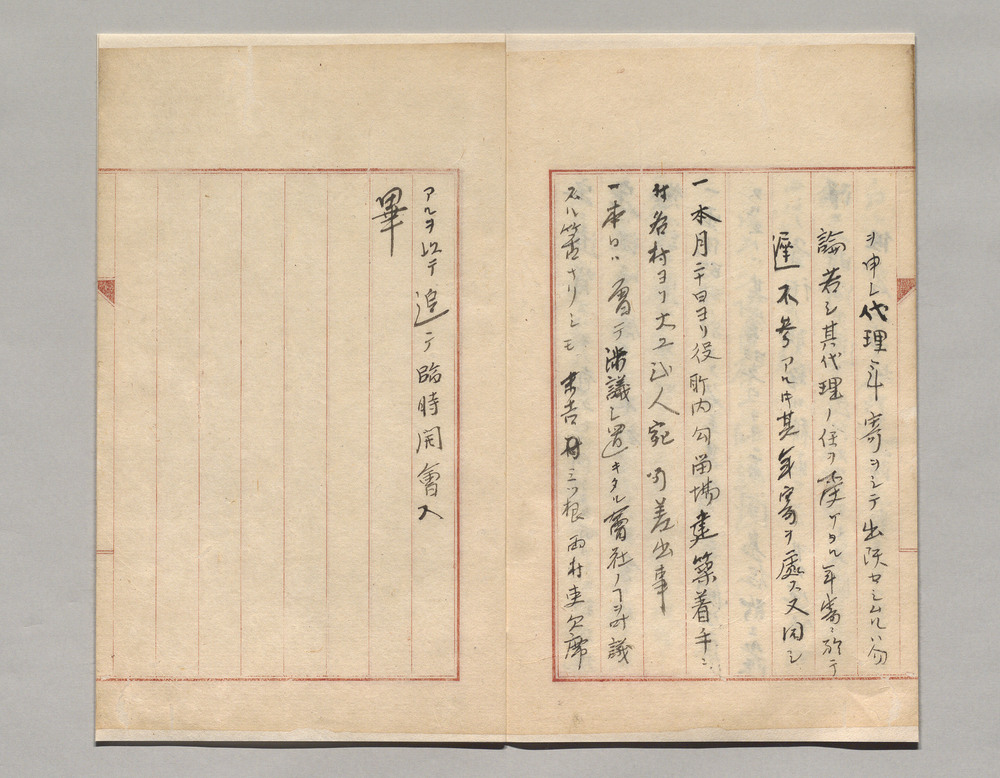 ヲ申シ代理年寄ヲシテ出頭セシムルハ勿
論若シ其代理ノ任ヲ受ケタル年寄ニ於テ
遅不参アルトキ其年寄ヲ處ス又同シ
一本月二十日ヨリ役所内勾留場建築着手ニ
付各村ヨリ大工 人宛可差出事
一本日ハ曽テ決議シ置キタル商社ノヿヲ討議
スル筈ナリシモ末吉村三ツ根両村吏欠席
アルヲ以テ追テ臨時開會ス
畢